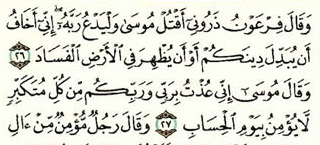 وَقَالَ فِرْعَوْنُ ذَرُونِىٓ أَقْتُلْ مُوسَىٰ وَلْيَدْعُ رَبَّهُۥٓ ۖ إِنِّىٓ أَخَافُ
أَن يُبَدِّلَ دِينَكُمْ أَوْ أَن يُظْهِرَ فِى ٱلْأَرْضِ ٱلْفَسَادَ ٢٦
وَقَالَ مُوسَىٰٓ إِنِّى عُذْتُ بِرَبِّى وَرَبِّكُم مِّن كُلِّ مُتَكَبِّرٍ
لَّا يُؤْمِنُ بِيَوْمِ ٱلْحِسَابِ ٢٧ وَقَالَ رَجُلٌ مُّؤْمِنٌ مِّنْ ءَالِ